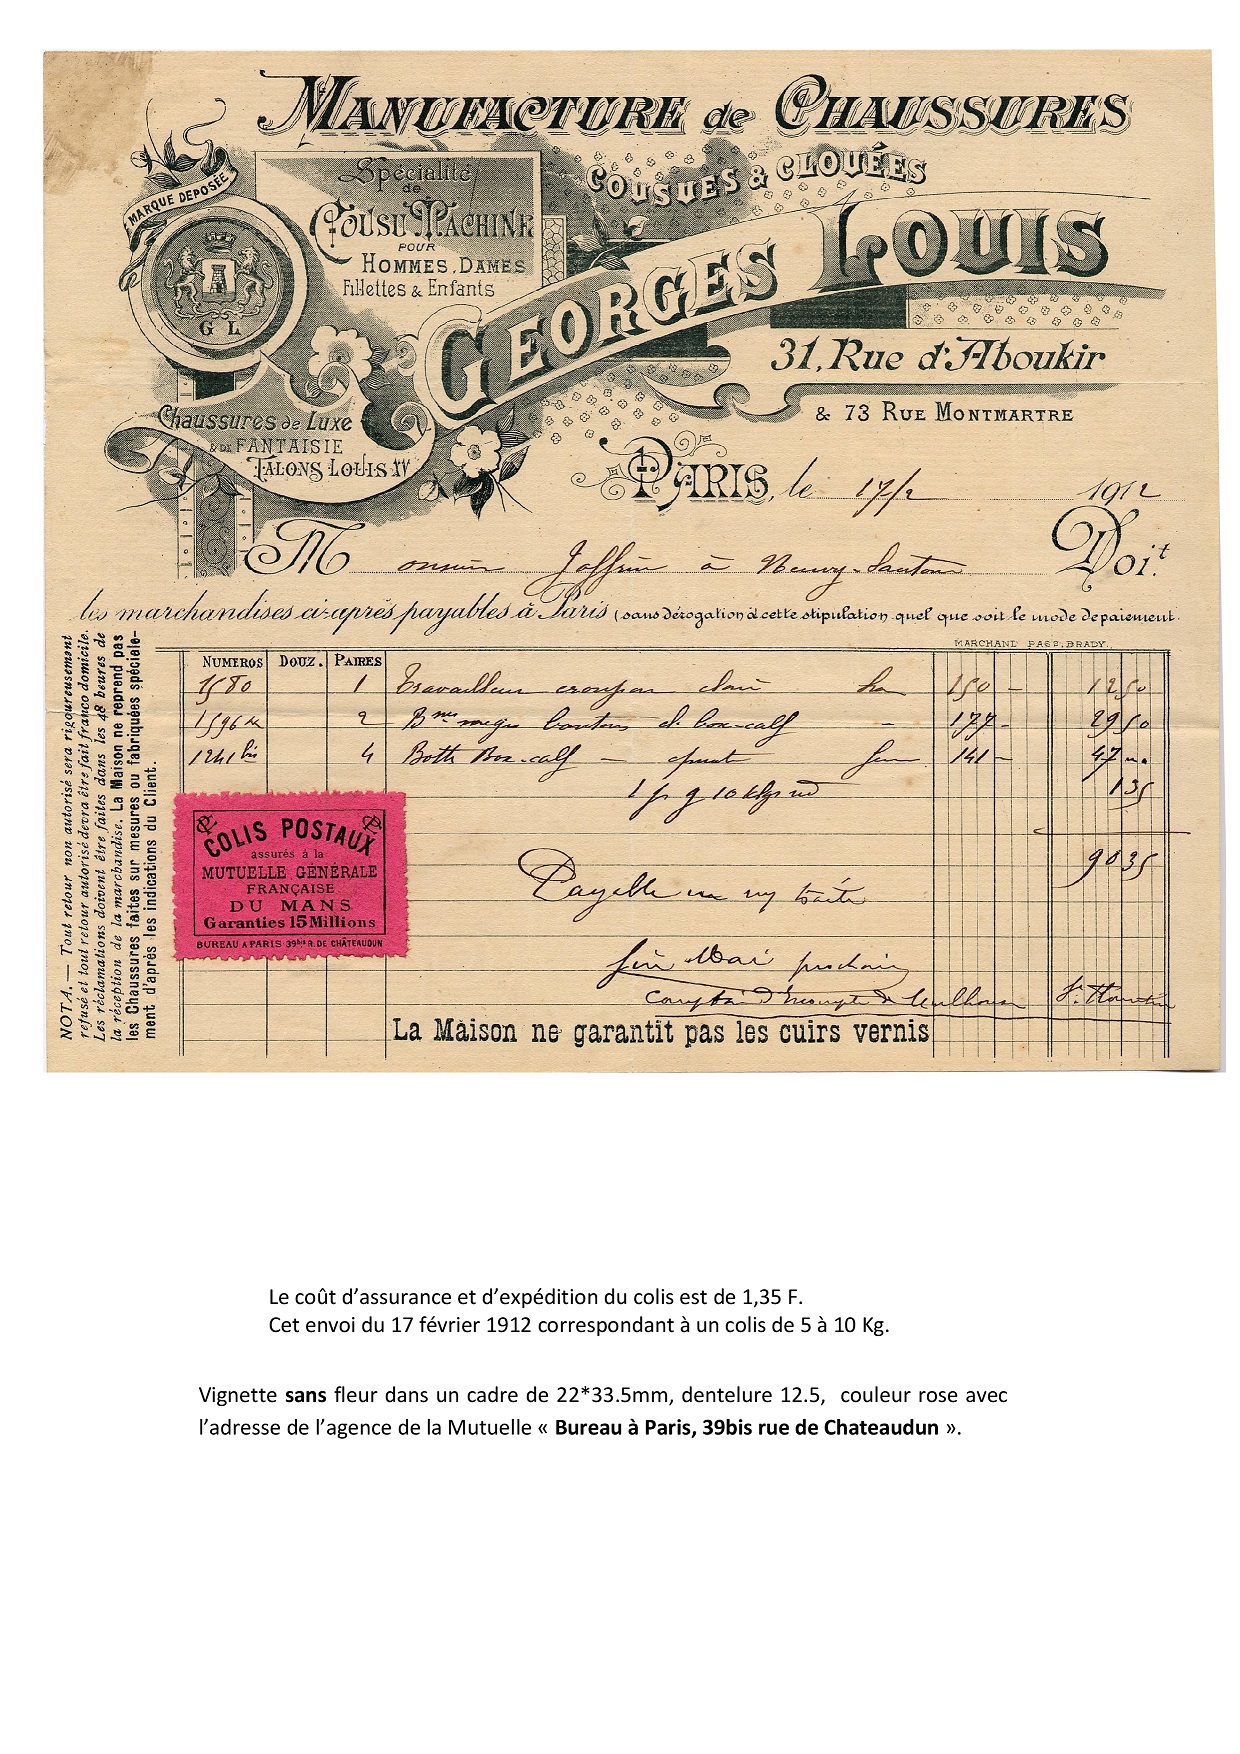 MANUFACTURE de CHAUSSURES
COUSUES & CLOUÉES
MARQUE DEPOSÉE
Spécialité
de
COUSU MACHINE
POUR
HOMMES, DAMES
Fillettes & Enfants
G L
GEORGES LOUIS
31, Rue d'Aboukir
& 73 RUE MONTMARTRE
Chaussures de Luxe
& DE FANTAISIE
TALONS LOUIS XV
PARIS, le 17/2 1912
Monsieur à Doit
les marchandises ci-après payables à Paris (sans dérogation à cette stipulation quel que soit le mode de paiement.
MARCHAND PASS. BRADY.
NOTA. — Tout retour non autorisé sera rigoureusement
refusé et tout retour autorisé devra être fait franco domicile.
Les réclamations doivent être faites dans les 48 heures de
la réception de la marchandise. La Maison ne reprend pas
les Chaussures faites sur mesures ou fabriquées spéciale-
ment d'après les indications du Client.
NUMEROS DOUZ. PAIRES
1580 1 Travailleur croupon 150 — 12 50
1596 2 boutons box-calf — 177 — 29 50
1241 bis 4 Box-calf — 141 — 47
1 10 1 35
90 35
Payable en traite
fin Mai prochain
Comptoir d'Escompte de Mulhouse
COLIS POSTAUX
assurés à la
MUTUELLE GÉNÉRALE
FRANÇAISE
DU MANS
Garanties 15 Millions
BUREAU A PARIS 39bis R. DE CHÂTEAUDUN
La Maison ne garantit pas les cuirs vernis
Le coût d'assurance et d'expédition du colis est de 1,35 F.
Cet envoi du 17 février 1912 correspondant à un colis de 5 à 10 Kg.
Vignette sans fleur dans un cadre de 22*33.5mm, dentelure 12.5, couleur rose avec
l'adresse de l'agence de la Mutuelle « Bureau à Paris, 39bis rue de Chateaudun ».